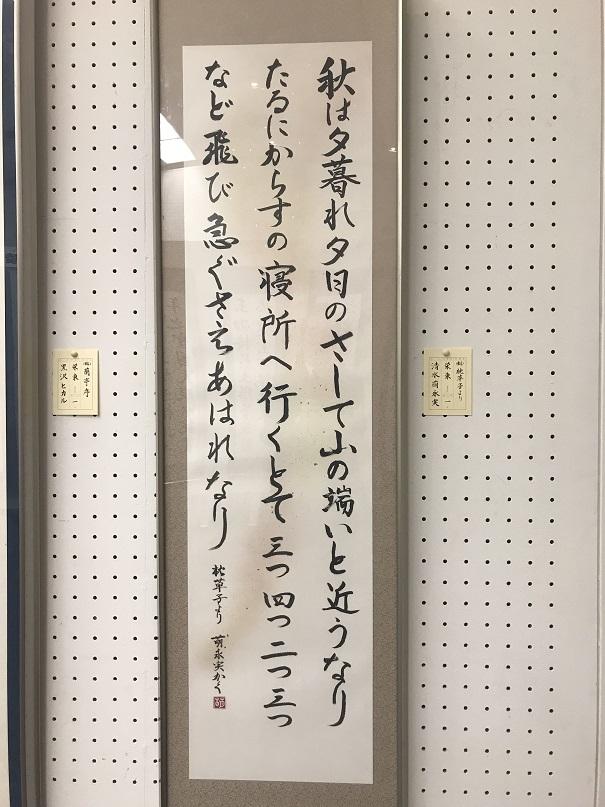 秋は夕暮れ夕日のさして山の端いと近うなり
たるにからすの寝所へ行くとて三つ四つ二つ三つ
など飛び急ぐさえあはれなり
枕草子より 萌永実かく
枕草子より
栄東 一
清水萌永実
蘭亭序
栄東 一
黒沢ヒカル